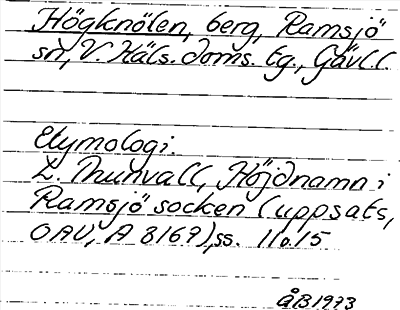 Högknölen, berg, Ramsjö
sn, V. Häls. doms. tg., Gävl.l.
Etymologi:
L. Thunvall, Höjdnamn i
Ramsjö socken (uppsats,
OAU, A 8169), ss. 11o.15
ÅB 1973